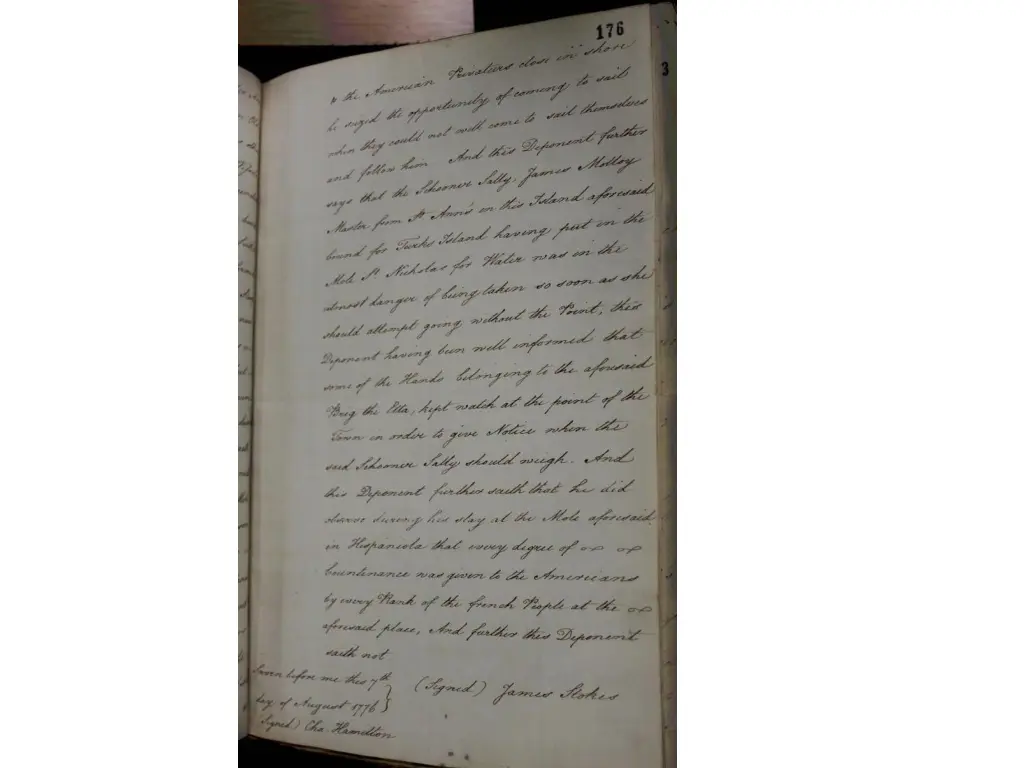 176
& the American Privateers close in shore
he seized the opportunity of coming to sail
when they could not well come to sail themselves
and follow him And this Deponent further
says that the Schooner Sally, James Molloy
Master from St Ann's in this Island aforesaid
bound for Turks Island having put in the
Mole St. Nicholas for Water was in the
utmost danger of being taken so soon as she
should attempt going without the Point, this
Deponent having been well informed that
some of the Hands belonging to the aforesaid
Brig the Etta, kept watch at the point of the
Town in order to give Notice when the
said Schooner Sally should weigh. And
this Deponent further saith that he did
observe during his stay at the Mole aforesaid
in Hispaniola that every degree of
Countenance was given to the Americans
by every Rank of the french People at the
aforesaid place, And further this Deponent
saith not
Sworn before me this 7th
day of August 1776
(Signed) James Stokes
Signed) Cha. Hamilton
3